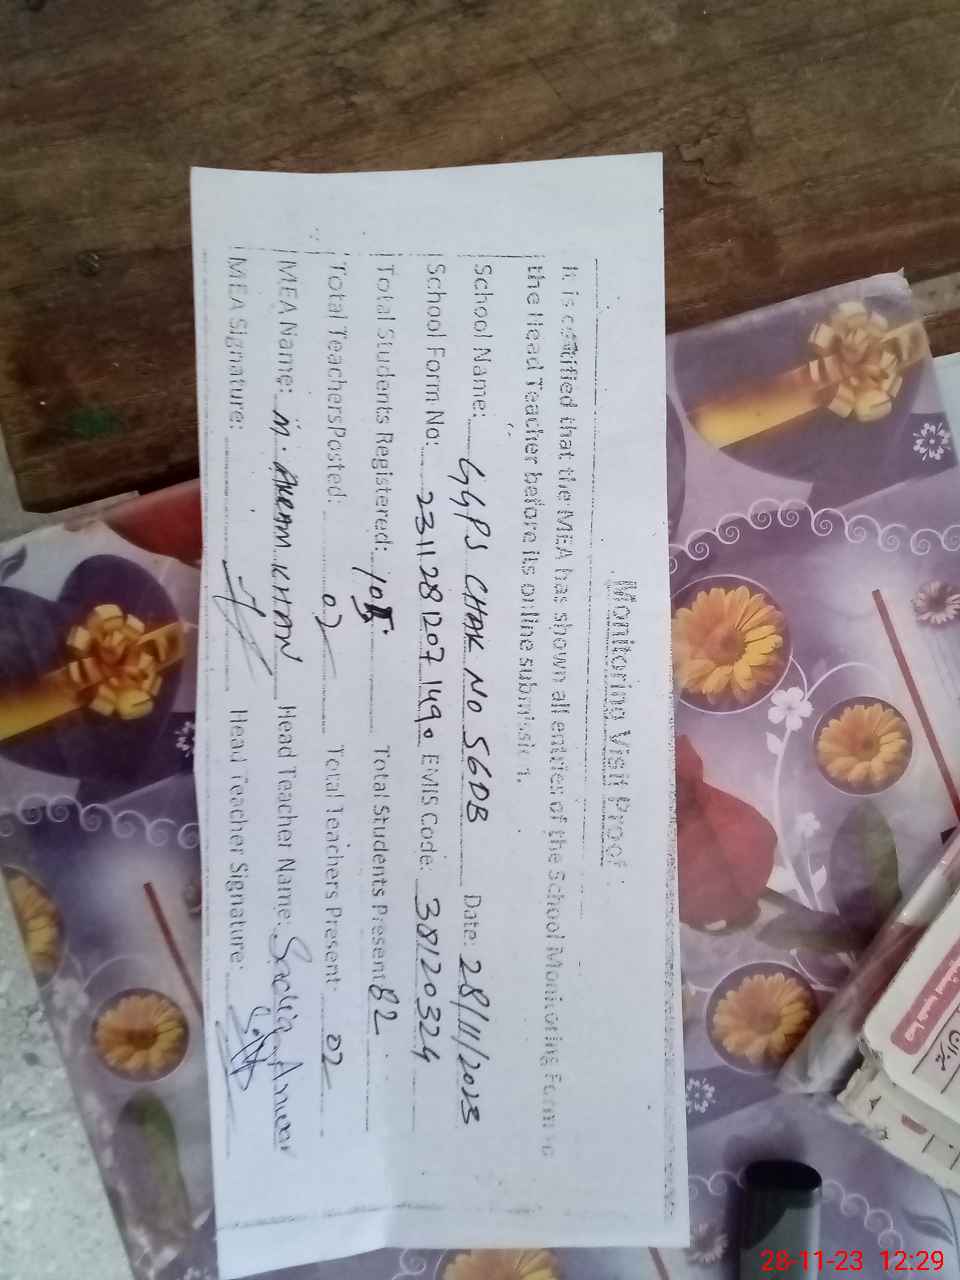 Monitoring Visit Proof
It is certified that the MEA has shown all entries of the School Monitoring Form to
the Head Teacher before its online submission.
School Name: GGPS CHAK NO 56DB Date: 28/11/2023
School Form No: EMIS Code: 38120324
Total Students Registered: 105 Total Students Present: 82
Total Teachers Posted: 02 Total Teachers Present: 02
MEA Name: M. AKRAM KHAN Head Teacher Name: Sadia Anwar
MEA Signature: Head Teacher Signature:
28-11-23 12:29